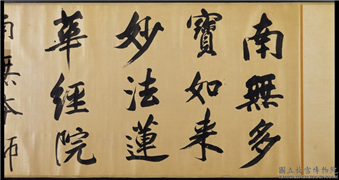 南無多
寶如来
妙法蓮
華經院
南無本師
國立故宮博物院